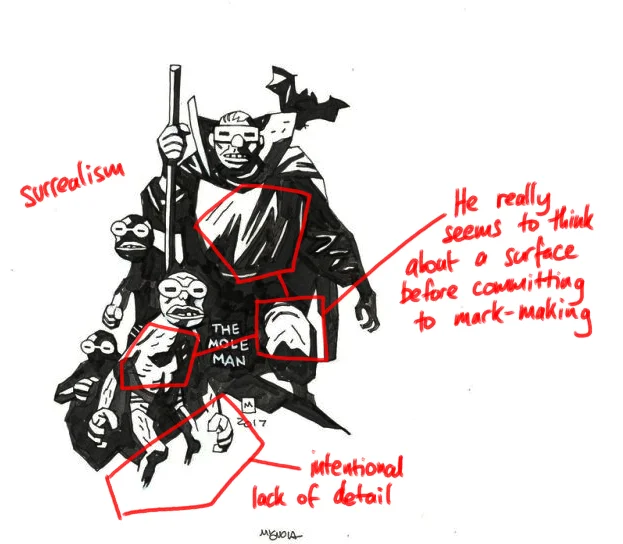 surrealism
He really
seems to think
about a surface
before committing
to mark-making
THE
MOLE
MAN
M
2017
intentional
lack of detail
MIGNOLA